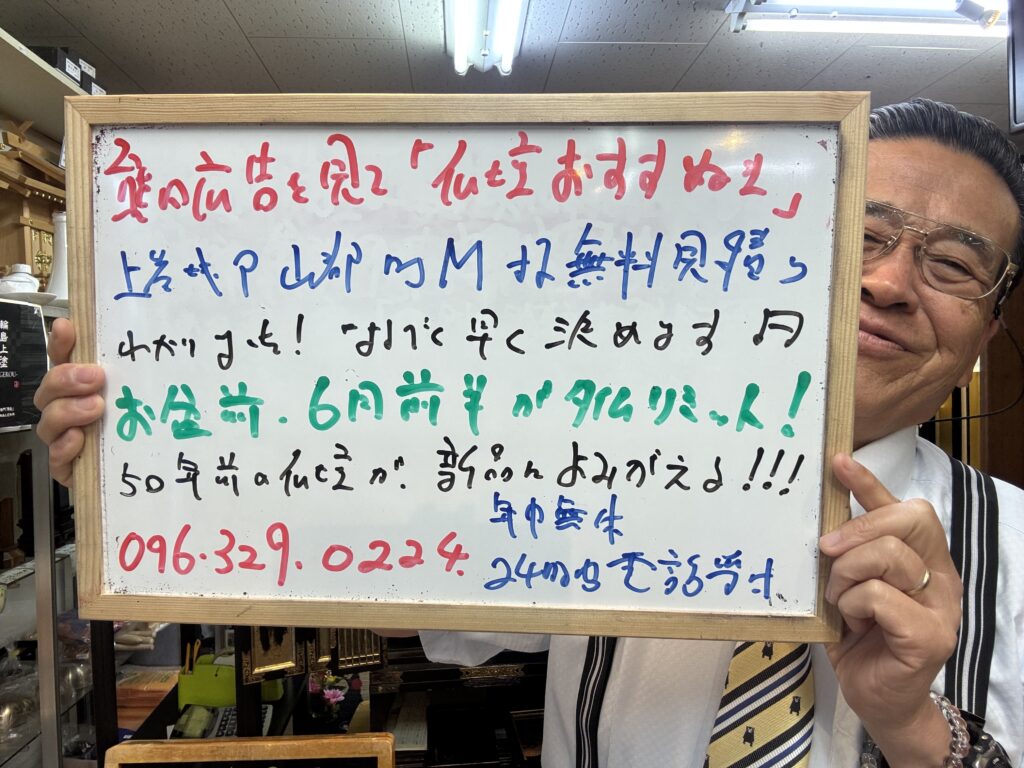 広告を見て「仏壇おすす
上益城 山都町M様無料見積り
わかりました！なるべく早く決めます
お盆前、6月前半がタイムリミット！
50年前の仏壇が新品によみがえる!!!
096.329.0224.
年中無休
24時間電話受付
輪島上塗